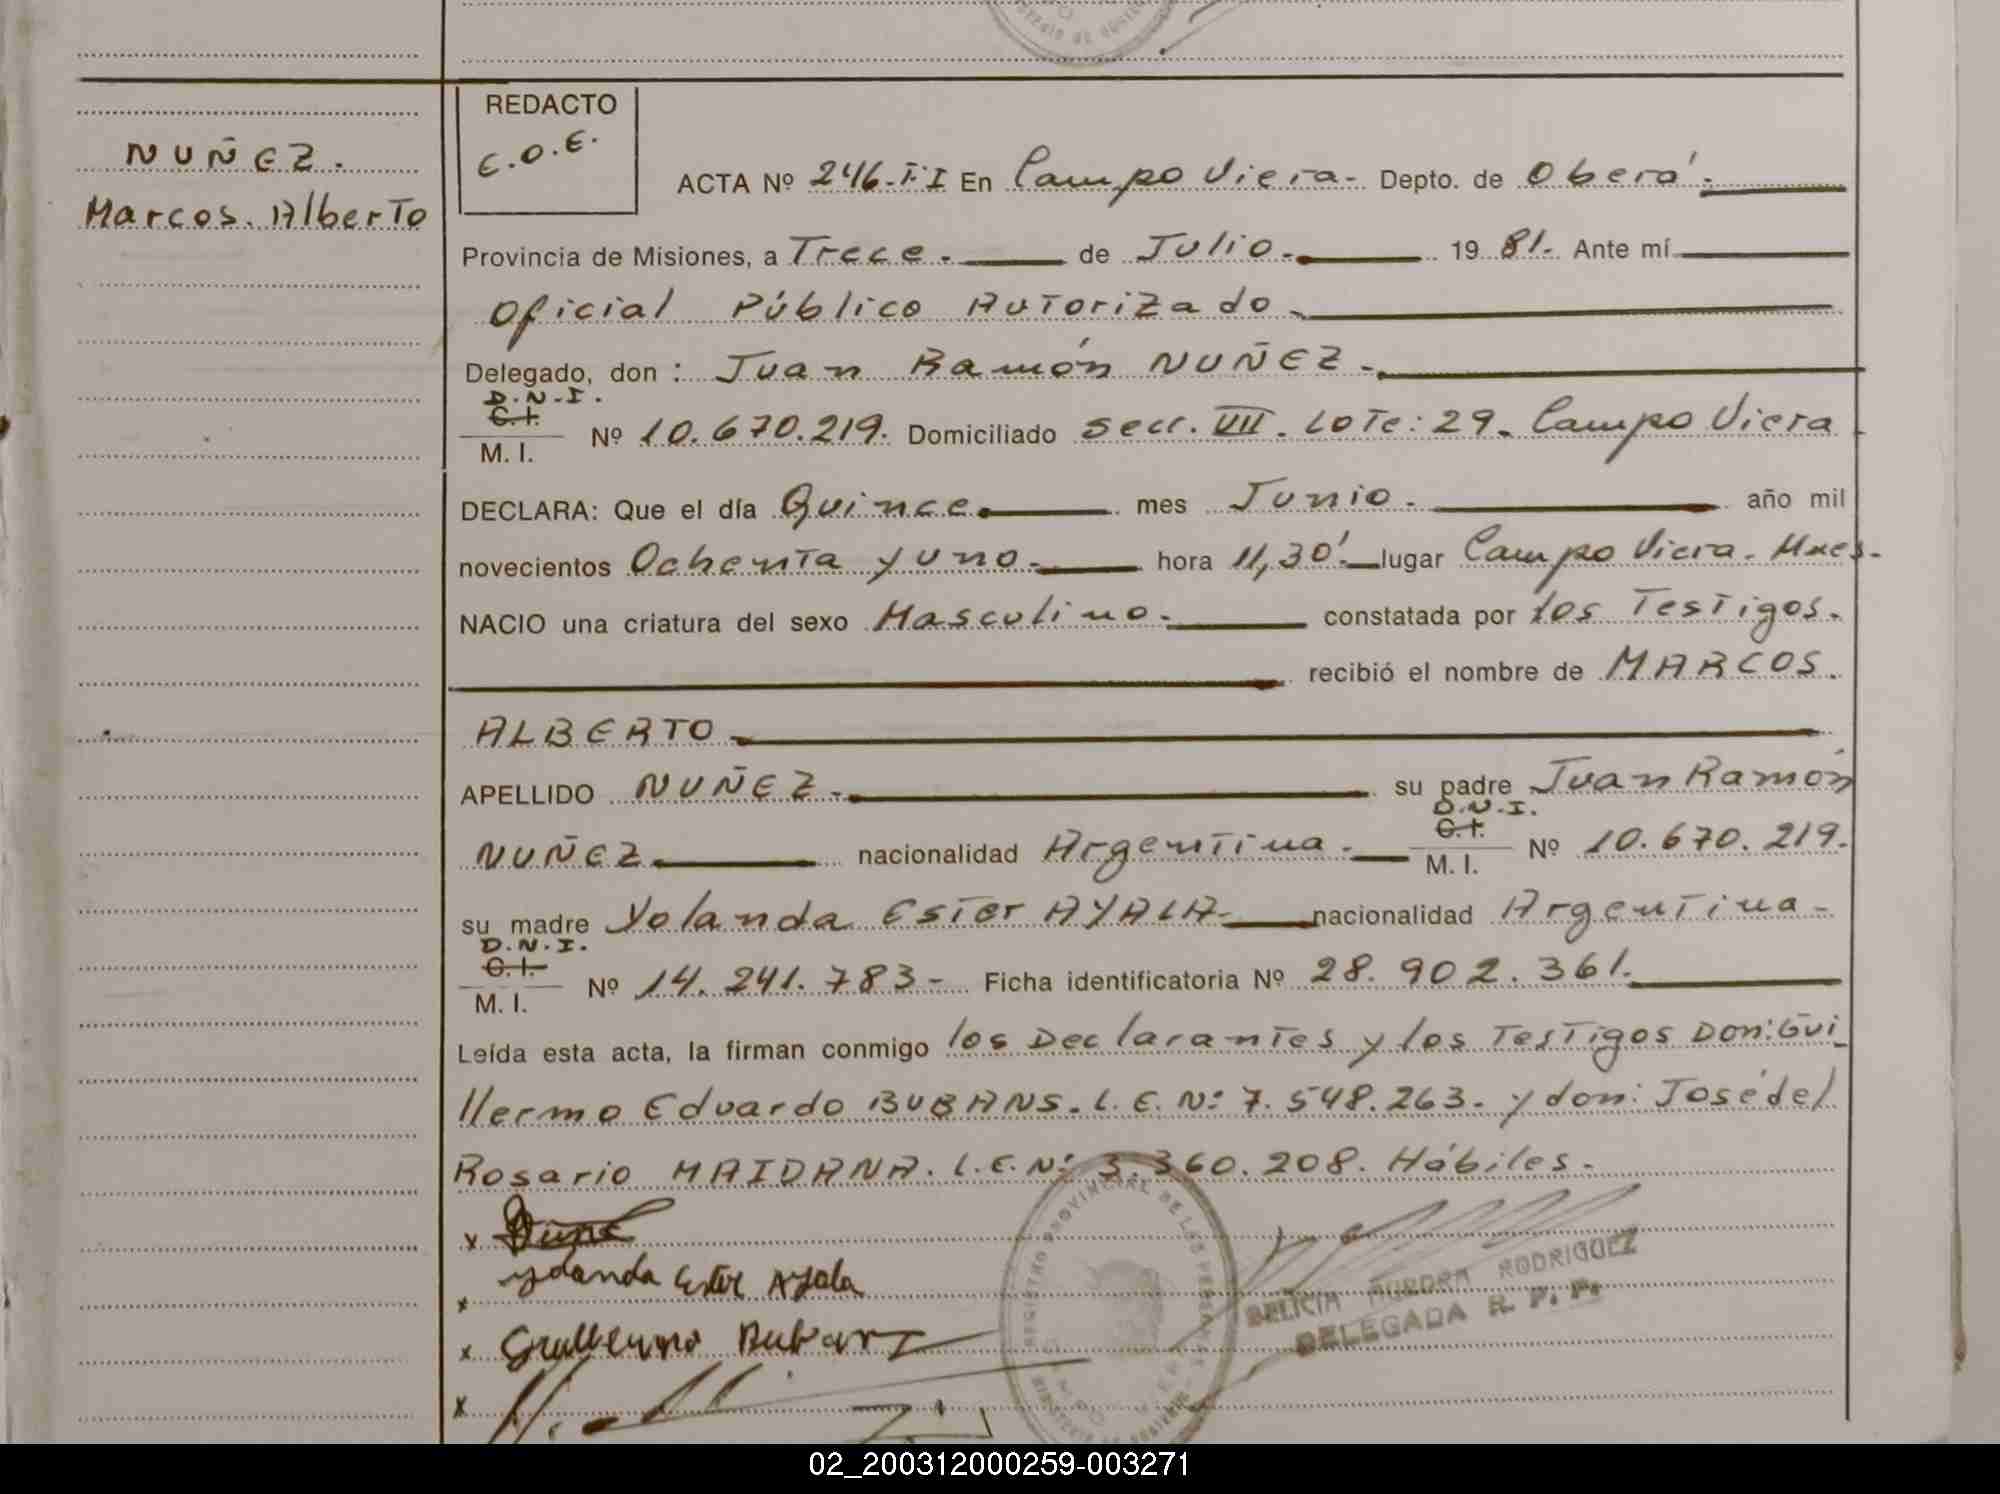 NUÑEZ.
Marcos. Alberto
REDACTO
E.O.E.
ACTA Nº 246-FI En Campo Viera- Depto. de Oberá.
Provincia de Misiones, a Trece. de Julio. 1981. Ante mí
Oficial Público Autorizado
Delegado, don: Juan Ramón NUÑEZ.
D.N.I.
C.I.
M. I. Nº 10.670.219. Domiciliado Secc. VII. Lote: 29. Campo Viera
DECLARA: Que el día Quince mes Junio. año mil
novecientos Ochenta y uno. hora 11,30' lugar Campo Viera. Mnes.
NACIO una criatura del sexo Masculino. constatada por los Testigos.
recibió el nombre de MARCOS.
ALBERTO
APELLIDO NUÑEZ. su padre Juan Ramón
D.N.I.
C.I.
NUÑEZ nacionalidad Argentina. M. I. Nº 10.670.219.
su madre Yolanda Ester AYALA nacionalidad Argentina-
D.N.I.
C.I.
M. I. Nº 14.241.783- Ficha identificatoria Nº 28.902.361.
Leída esta acta, la firman conmigo los Declarantes y los Testigos Don: Gui
llermo Eduardo BUBANS. L.E. Nº 7.548.263. y don: José del
Rosario MAIDANA. L.E. Nº 3.360.208. Hábiles.
x
x Yolanda Ester Ayala
x Guillermo Bubans
x
REGISTRO PROVINCIAL DE LAS PERSONAS
DELICIA AURORA RODRIGUEZ
DELEGADA R. P. P.
02_200312000259-003271